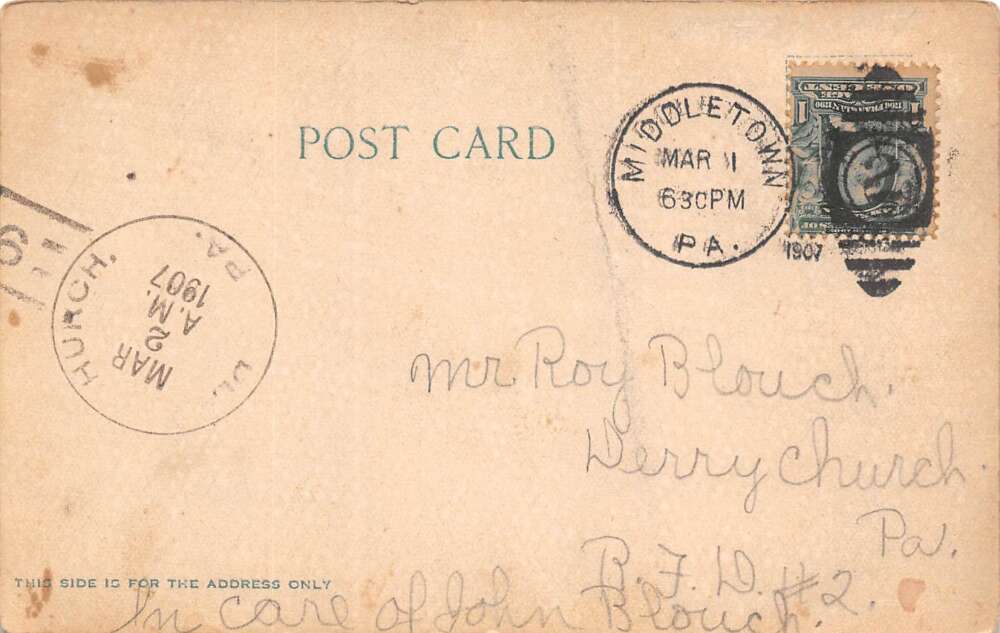 POST CARD
MIDDLETOWN
MAR 1
630PM
PA.
1907
1
1
2
HURCH.
PA.
MAR
2
A.M.
1907
9
Mr Roy Blouch.
Derry church.
Pa.
R. F. D. #2.
In care of John Blouch.
THIS SIDE IS FOR THE ADDRESS ONLY